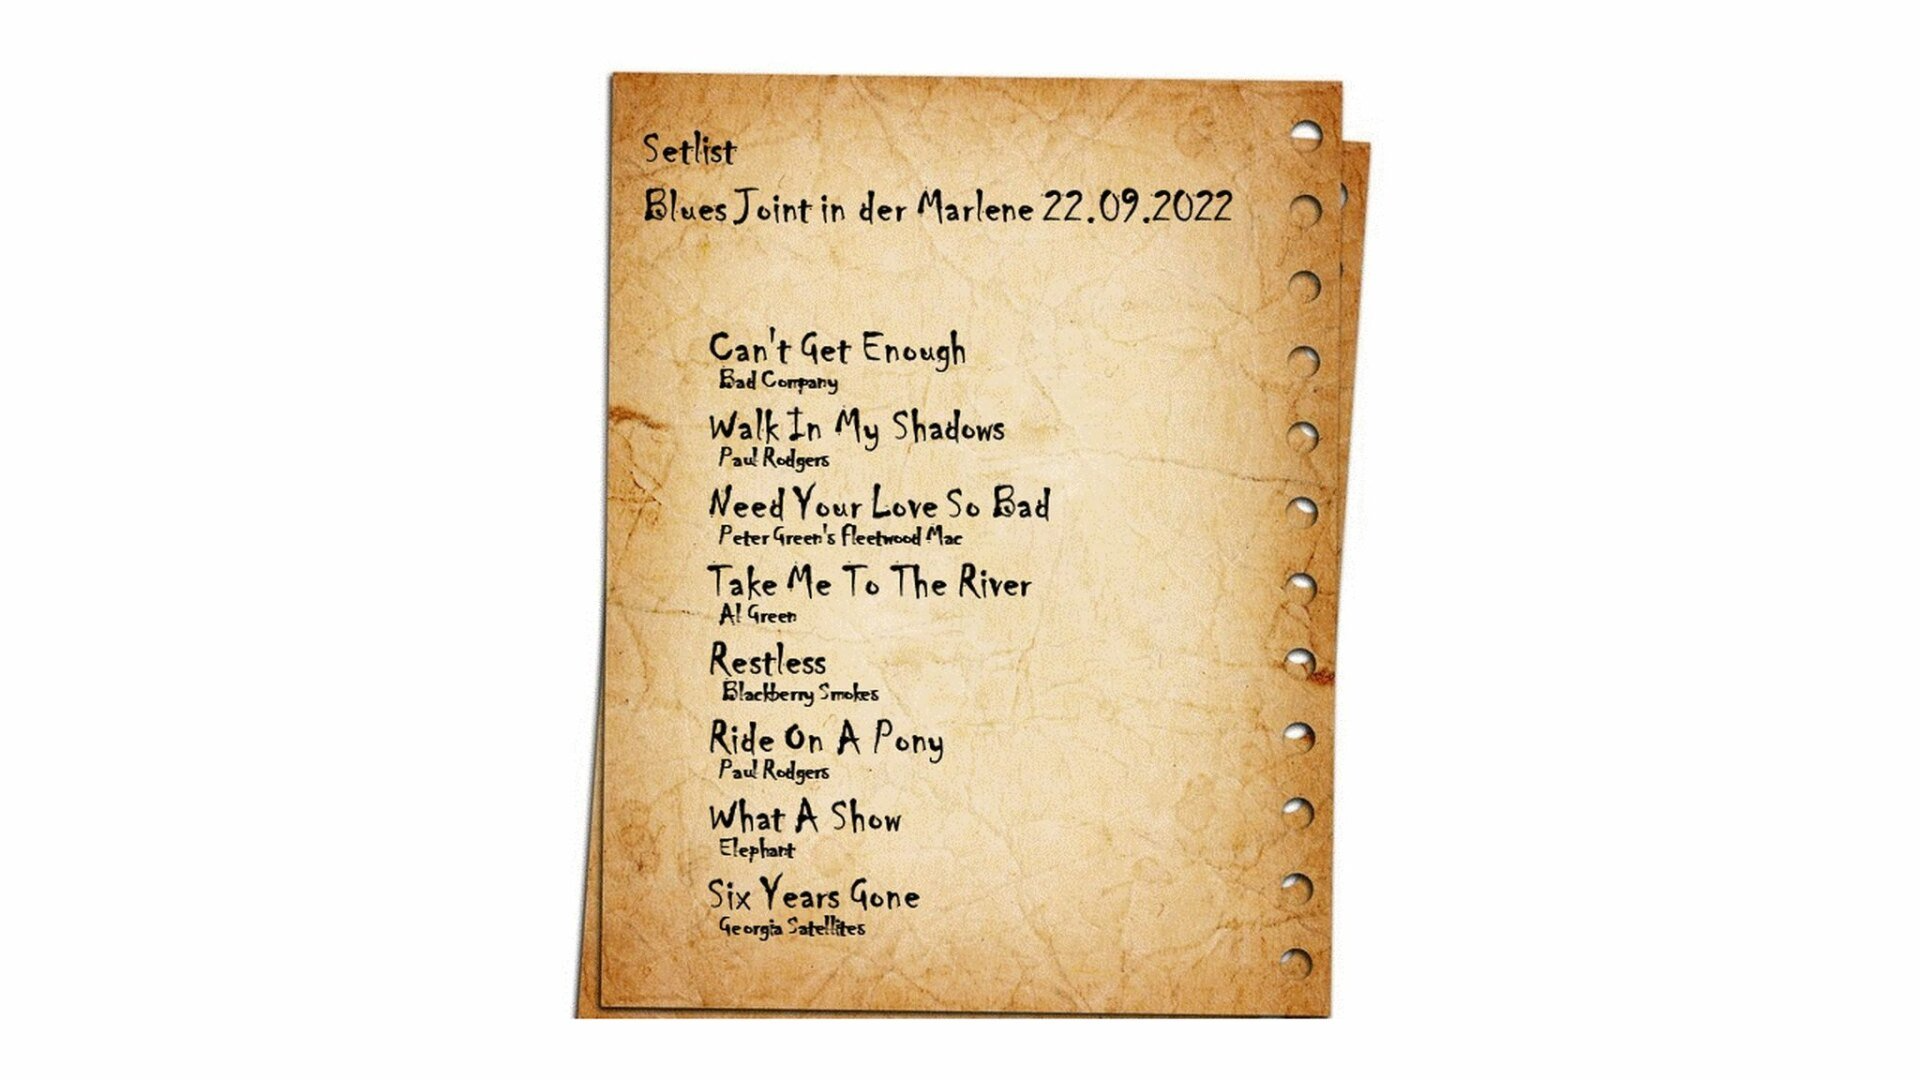 Setlist
Blues Joint in der Marlene 22.09.2022
Can't Get Enough
Bad Company
Walk In My Shadows
Paul Rodgers
Need Your Love So Bad
Peter Green's Fleetwood Mac
Take Me To The River
Al Green
Restless
Blackberry Smokes
Ride On A Pony
Paul Rodgers
What A Show
Elephant
Six Years Gone
Georgia Satellites